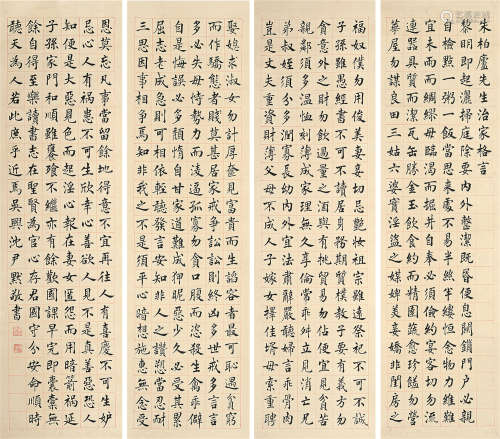 朱柏廬先生治家格言
黎明即起灑掃庭除要內外整潔既昏便息關鎖門戶必親
自檢點一粥一飯當思來處不易半絲半縷恒念物力維艱
宜未雨而綢繆毋臨渴而掘井自奉必須儉約宴客切勿流
連器具質而潔瓦缶勝金玉飲食約而精園蔬愈珍饈勿營
華屋勿謀良田三姑六婆實淫盜之媒婢美妾嬌非閨房之
福奴僕勿用俊美妻妾切忌艷妝祖宗雖遠祭祀不可不誠
子孫雖愚經書不可不讀居身務期質樸教子要有義方勿
貪意外之財勿飲過量之酒與肩挑貿易勿佔便宜見貧苦
親鄰須多溫恤刻薄成家理無久享倫常乖舛立見消亡兄
弟叔姪須分多潤寡長幼內外宜法肅辭嚴聽婦言乖骨肉
豈是丈夫重資財薄父母不成人子嫁女擇佳壻毋索重聘
娶媳求淑女勿計厚奩見富貴而生諂容者最可恥遇貧窮
而作驕態者賤莫甚居家戒爭訟訟則終凶處世戒多言言
多必失毋恃勢力而淩逼孤寡勿貪口腹而恣殺生禽乖僻
自是悔誤必多頹惰自甘家道難成狎昵惡少久必受其累
屈志老成急則可相依輕聽發言安知非人之譖愬當忍耐
三思因事相爭焉知非我之不是須平心暗想施惠無念受
恩莫忘凡事當留餘地得意不宜再往人有喜慶不可生妒
忌心人有禍患不可生欣幸心善欲人見不是真善惡恐人
知便是大惡見色而起淫心報在妻女匿怨而用暗箭禍延
子孫家門和順雖饔飧不繼亦有餘歡國課早完即囊橐無
餘自得至樂讀書志在聖賢為官心存君國守分安命順時
聽天為人若此庶乎近焉吳興沈尹默敬書